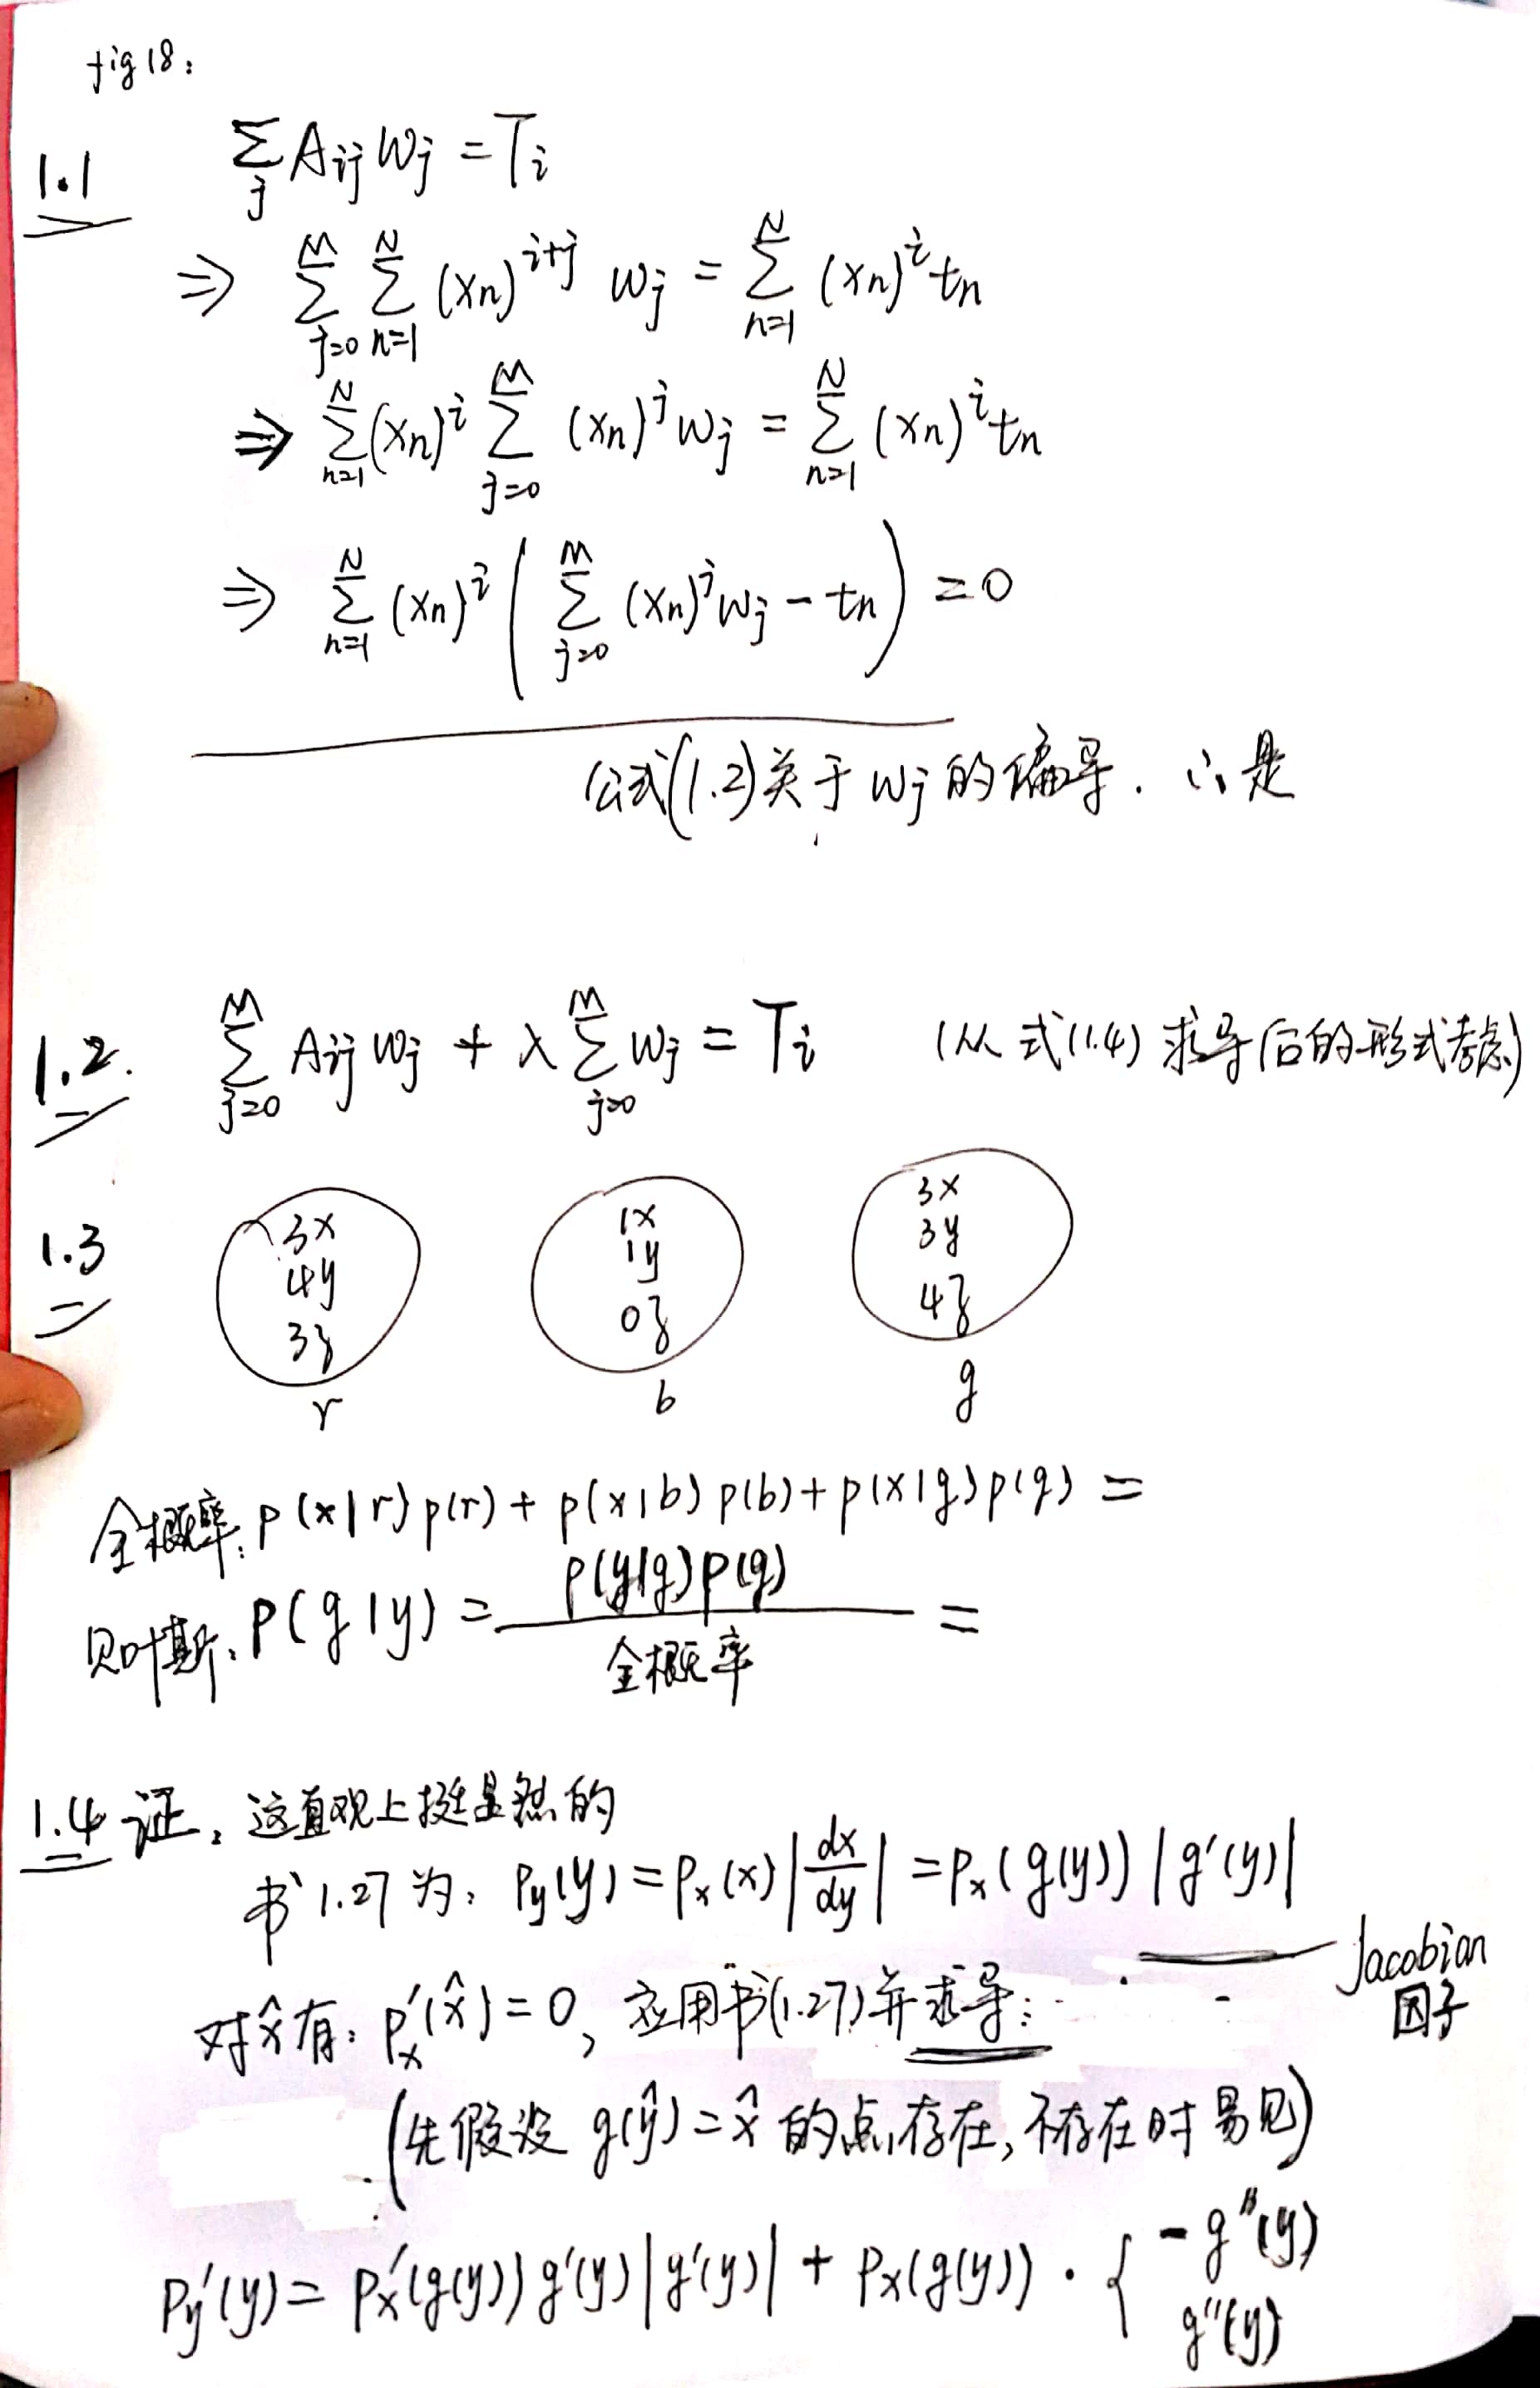 fig 18:
1.1 ∑_j A_ij w_j = T_i
⇒ ∑_{j=0}^{M} ∑_{n=1}^{N} (x_n)^{i+j} w_j = ∑_{n=1}^{N} (x_n)^i t_n
⇒ ∑_{n=1}^{N} (x_n)^i ∑_{j=0}^{M} (x_n)^j w_j = ∑_{n=1}^{N} (x_n)^i t_n
⇒ ∑_{n=1}^{N} (x_n)^i ( ∑_{j=0}^{M} (x_n)^j w_j - t_n ) = 0
公式(1.2)关于 w_j 的偏导. ∴是
1.2. ∑_{j=0}^{M} A_ij w_j + λ ∑_{j=0}^{M} w_j = T_i (从式(1.4)求导后的形式考虑)
1.3
3x 1x 3x
4y 1y 3y
3z 0z 4z
r b g
全概率: p(x|r)p(r) + p(x|b)p(b) + p(x|g)p(g) =
贝叶斯: p(g|y) = p(y|g)p(g) / 全概率 =
1.4 证: 这直观上挺显然的
书1.27为: p_y(y) = p_x(x) |dx/dy| = p_x(g(y)) |g'(y)|
Jacobian
因子
对x̂有: p_x'(x̂) = 0, 应用书(1.27)并求导:
(先假设 g(ŷ) = x̂ 的点存在, 不存在时易见)
p_y'(y) = p_x'(g(y)) g'(y) |g'(y)| + p_x(g(y)) · { -g''(y)
g''(y)